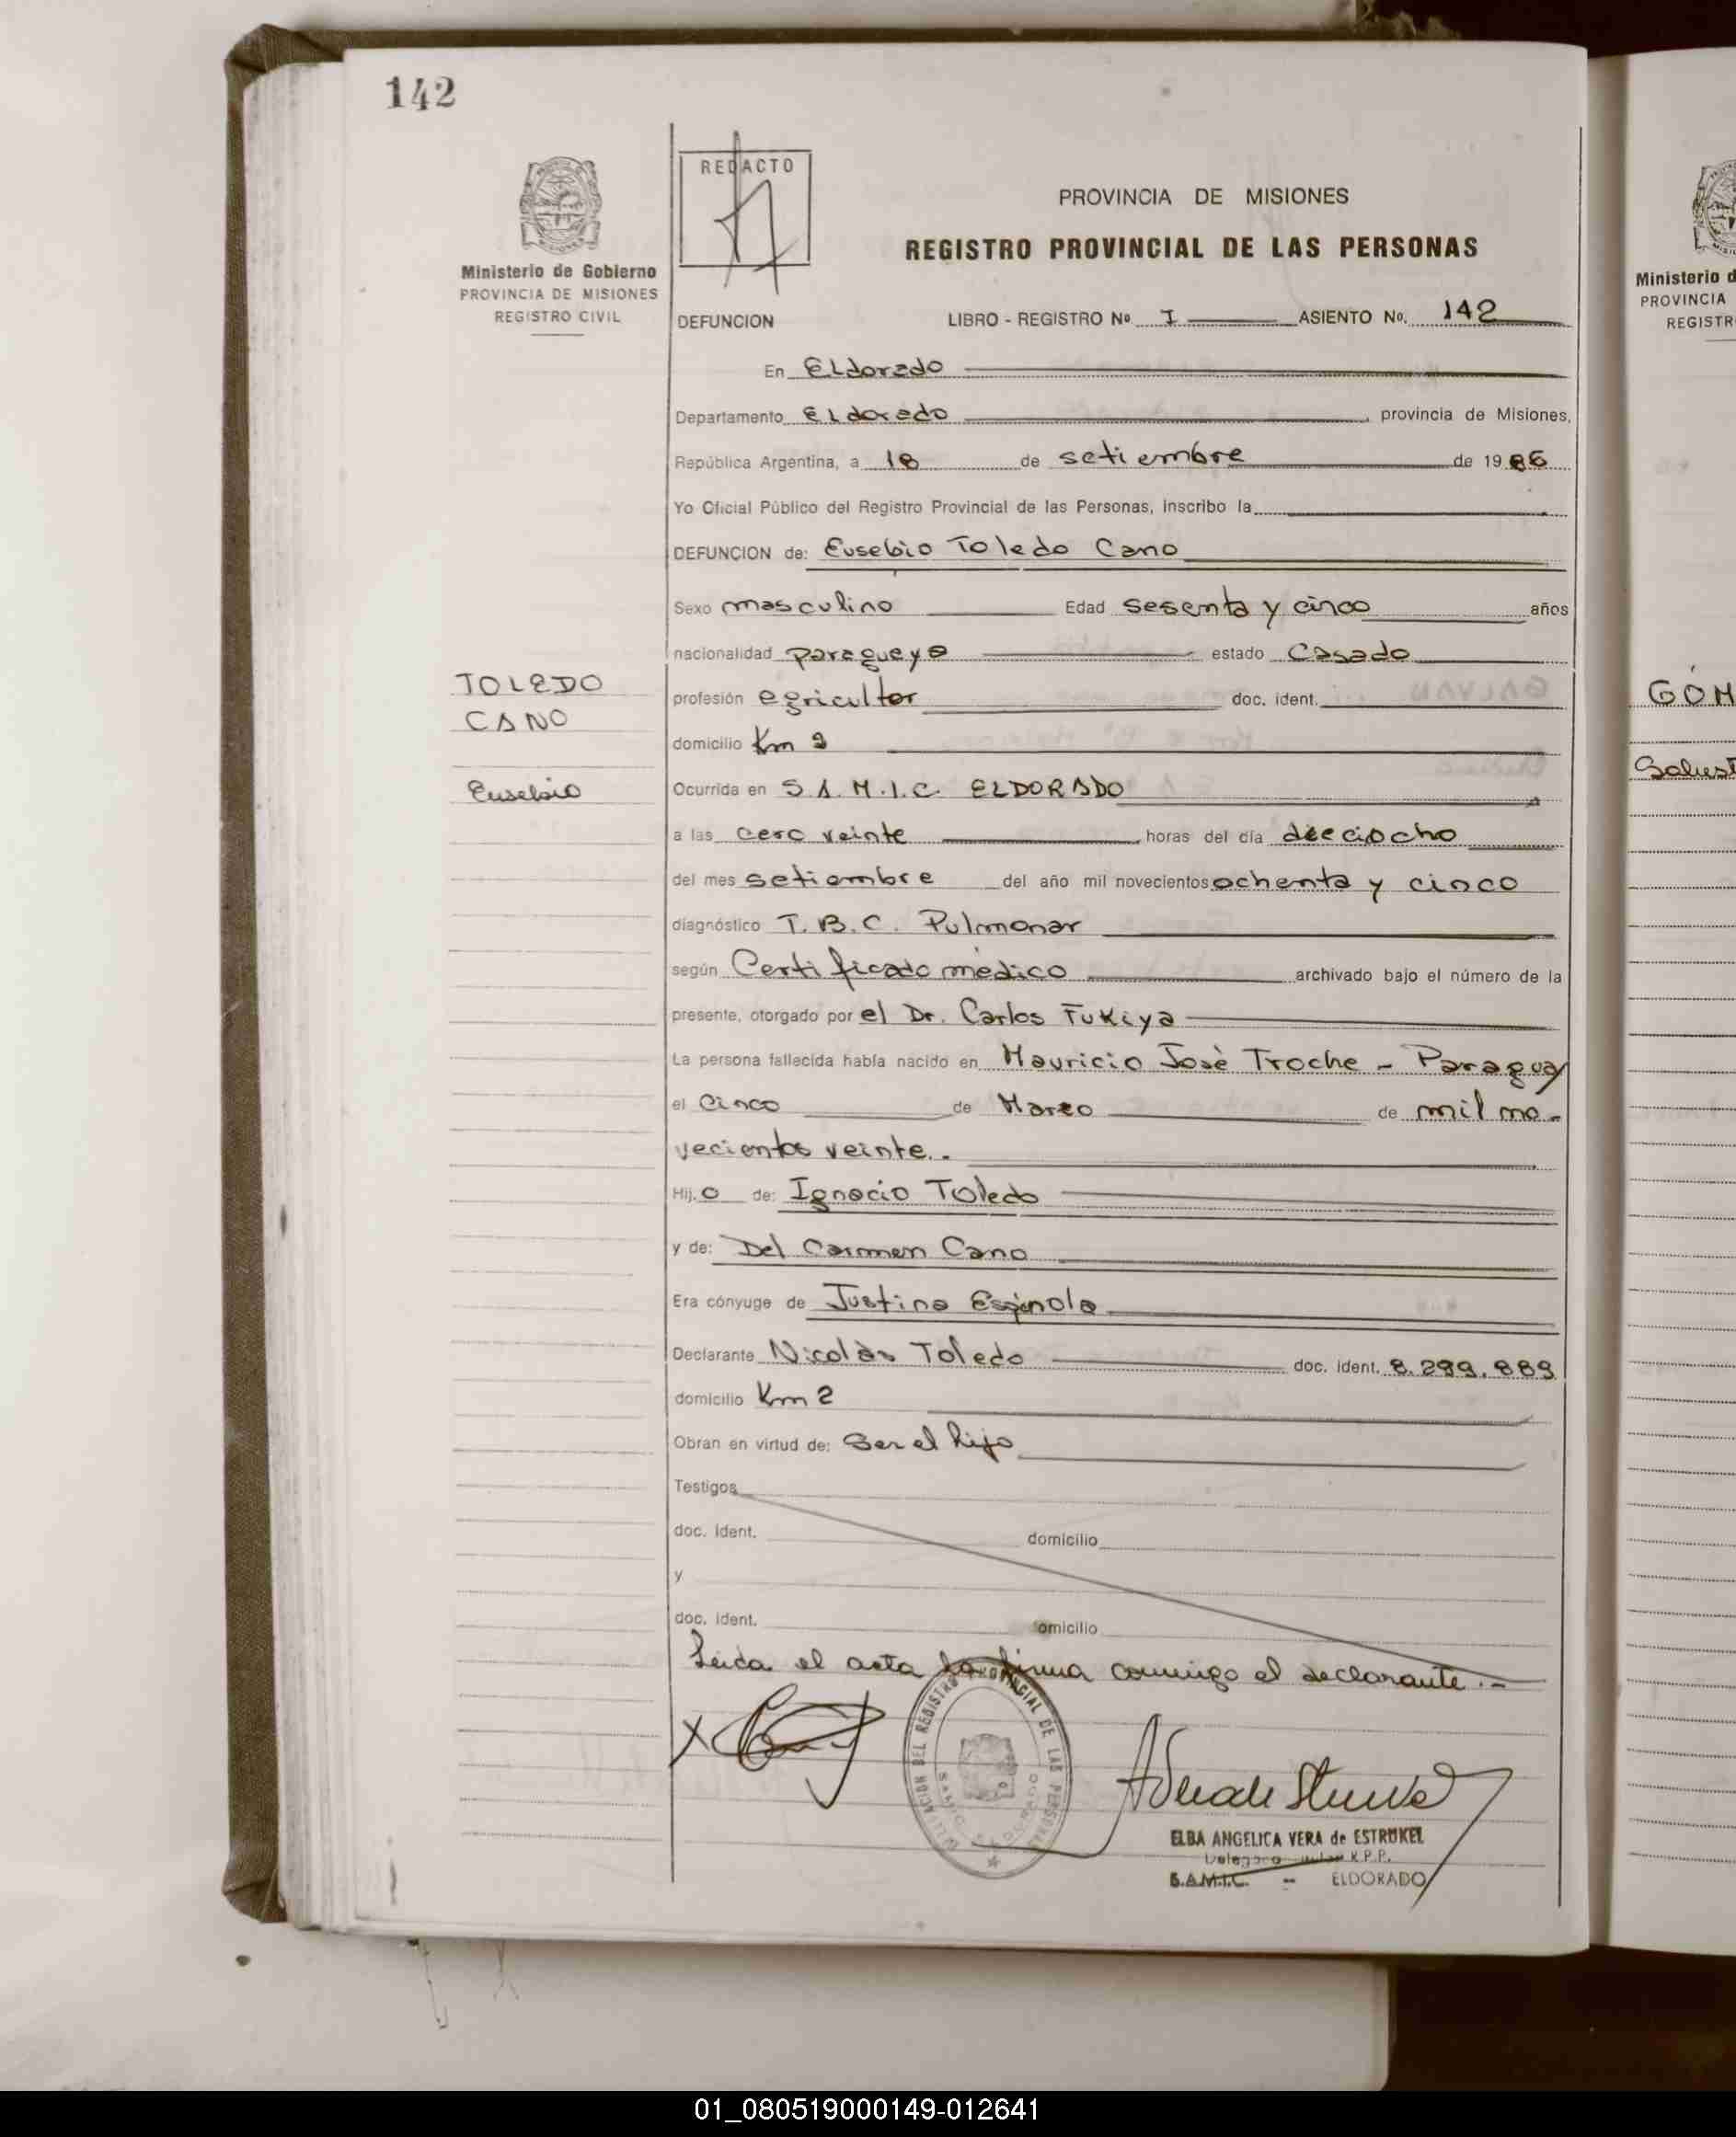 142
REDACTO
PROVINCIA DE MISIONES
REGISTRO PROVINCIAL DE LAS PERSONAS
Ministerio de Gobierno
PROVINCIA DE MISIONES
REGISTRO CIVIL
DEFUNCION LIBRO - REGISTRO Nº I ASIENTO No. 142
En Eldorado
Departamento Eldorado, provincia de Misiones,
República Argentina, a 18 de setiembre de 19
Yo Oficial Público del Registro Provincial de las Personas, inscribo la
DEFUNCION de: Eusebio Toledo Cano
Sexo masculino Edad sesenta y cinco años
nacionalidad paraguayo estado Casado
TOLEDO
CANO
Eusebio
profesión agricultor doc. ident.
domicilio Km 2
Ocurrida en S.A.M.I.C. ELDORADO
a las cero veinte horas del día dieciocho
del mes setiembre del año mil novecientos ochenta y cinco
diagnóstico T.B.C. Pulmonar
según Certificado médico archivado bajo el número de la
presente, otorgado por el Dr. Carlos Fukiya
La persona fallecida había nacido en Mauricio José Troche - Paraguay
el Cinco de Marzo de mil no-
vecientos veinte.-
Hijo de: Ignacio Toledo
y de: Del Carmen Cano
Era cónyuge de Justina Espinola
Declarante Nicolás Toledo doc. ident. 8.299.889
domicilio Km 2
Obran en virtud de: Ser el hijo
Testigos
doc. ident. domicilio
y
doc. ident. omicilio
Leida el acta la firma conmigo el declarante.-
DEL REGISTRO PROVINCIAL DE LAS PERSONAS
ELBA ANGELICA VERA de ESTRUKEL
R.P.P.
S.A.M.I.C. - ELDORADO
Ministerio d
PROVINCIA
REGISTR
GÓM
01_080519000149-012641